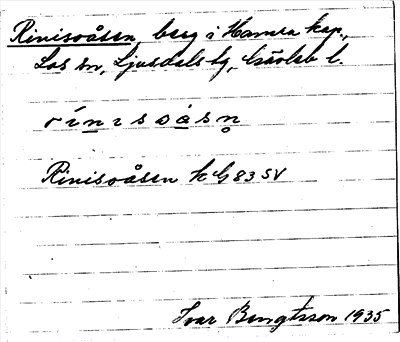 Rinisoåsen, berg i Hamra kap.,
Los sn, Ljusdals tg, Gävleb l.
rínisoåsn̥
Rinisoåsen kG 83 SV
Ivar Bengtsson 1935